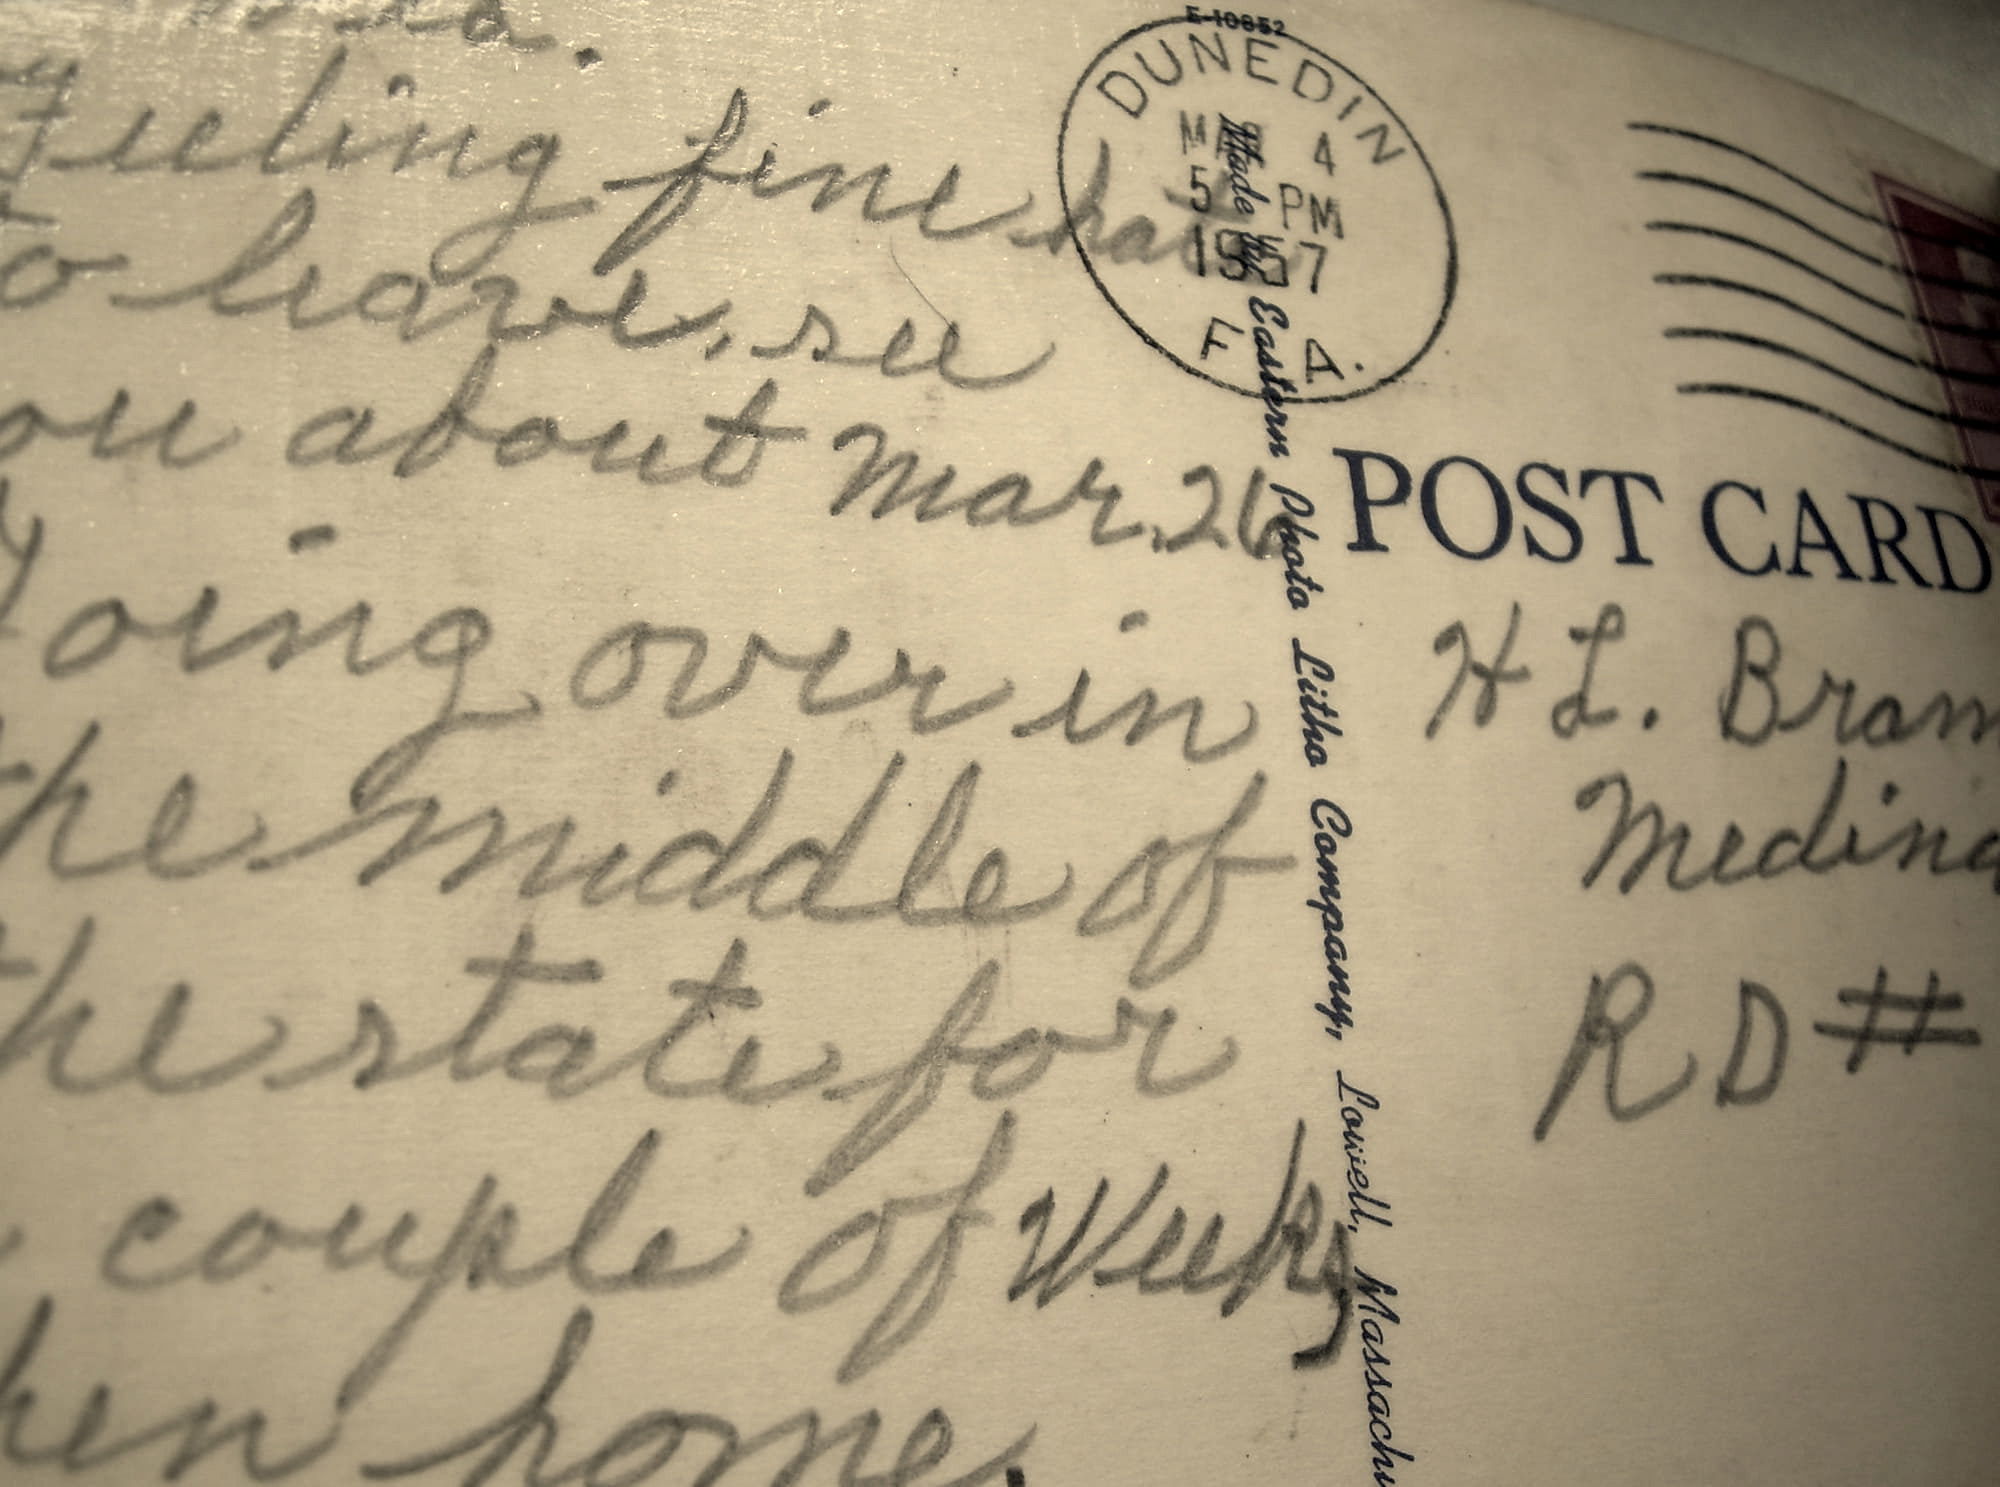 Feeling fine hate
to leave, see
you about Mar. 26
Going over in
the middle of
the state for
a couple of Weeks
then home.
E-10852
DUNEDIN
MAR 4
5 PM
1957
FLA.
Made by Eastern Photo Litho Company, Lowell, Massachu
POST CARD
H L. Bram
Medina
R D #